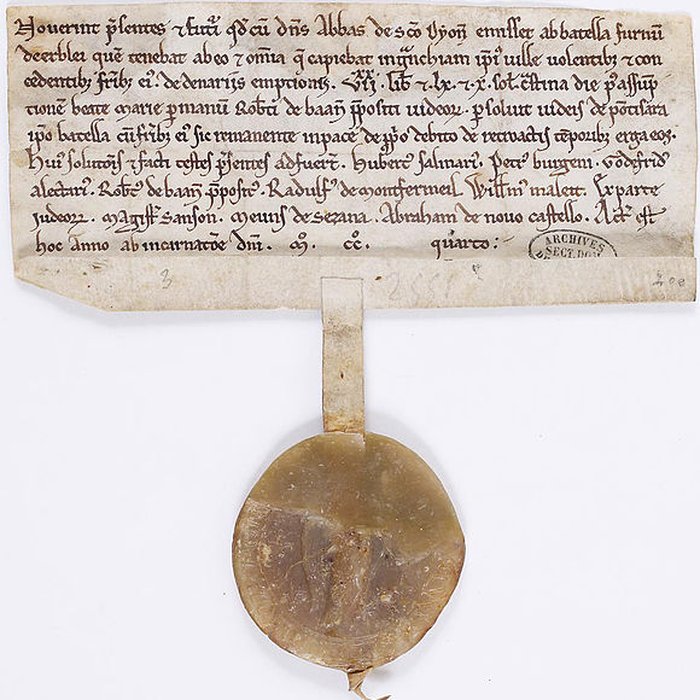 Noverint p̄sentes ⁊ futuri q̄d cū dn̄s Abbas de sc̄o Dyoñ emisset ab batella furnū
deerblei quē tenebat ab eo ⁊ om̄ia q̄ capiebat in ipi᷒ ville volentibȝ ⁊ con
cedentibȝ fr̄ibȝ ei᷒. de denariis emptionis. lib̄ ⁊. lx. ⁊. x. sol᷒. c̄stina die p᷒ assūp
tionem beate marie p̄ manū Rob̄ti de baañ p̄positi iudeoꝝ. p̄soluit iudeis de pōtisara
ip̄o batella cū fr̄ibȝ ei᷒ sic remanente in pace de debito de retroactis tēporibȝ erga eos.
Hui᷒ ⁊ facti testes p̄sentes adfuer̄t. Hubert᷒ salnari᷒. Petr᷒ burgeñ. Godefrid᷒
alectari᷒. Rob̄t᷒ de baañ p̄posit᷒. Radulf᷒ de montfermeil. Will̄m᷒ malet. Ex parte
iudeoꝝ. magist̄ Sanson. meuns de sezana. Abraham de novo castello. Act̄ est
hoc anno ab incarnatōe dn̄i. m̊. cc̊. quarto:
ARCHIVES
SECT. DOM
3